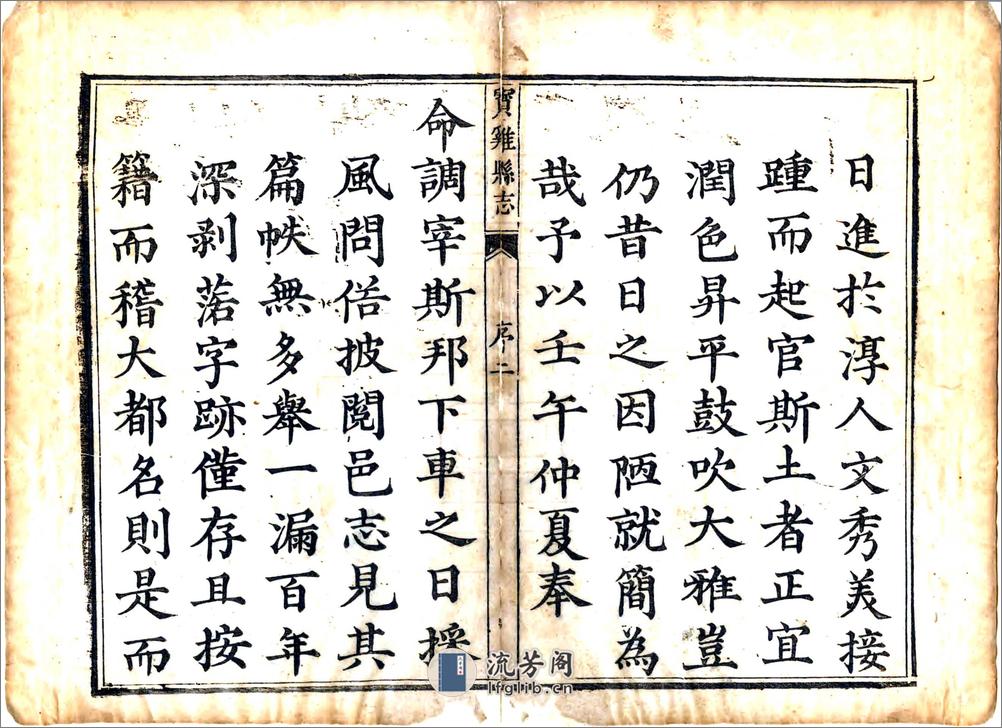 日進於淳人文秀美接
踵而起官斯土者正宜
潤色昇平鼓吹大雅豈
仍昔日之因陋就簡為
哉予以壬午仲夏奉
寶雞縣志
序二
命調宰斯邦下車之日採
風問俗披閱邑志見其
篇帙無多舉一漏百年
深剥落字跡僅存且按
籍而稽大都名則是而
流芳阁
lfglib.cn